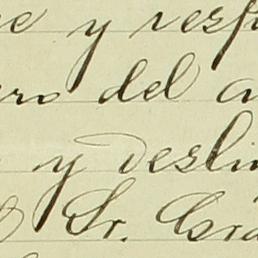 e y resp
ero del a
y desli
Sr. Gra